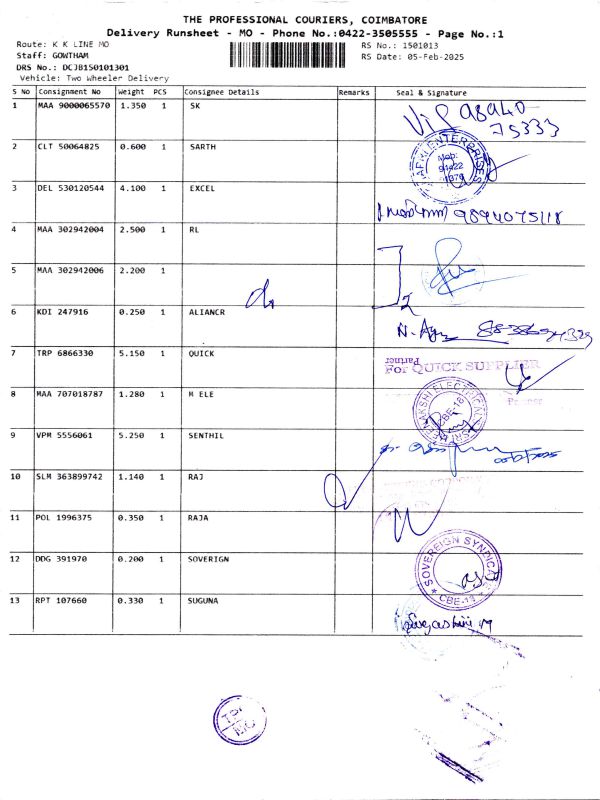 THE PROFESSIONAL COURIERS, COIMBATORE
Delivery Runsheet - MO - Phone No.:0422-3505555 - Page No.:1
Route: K K LINE MO
RS No.: 1501013
Staff: GOWTHAM
RS Date: 05-Feb-2025
DRS No.: DCJB150101301
Vehicle: Two Wheeler Delivery
S No Consignment No Weight PCS Consignee Details Remarks Seal & Signature
1 MAA 9000065570 1.350 1 SK
75333
2 CLT 50064825 0.600 1 SARTH
ENTERPRISES
Mob:
3 DEL 530120544 4.100 1 EXCEL
9894075118
4 MAA 302942004 2.500 1 RL
5 MAA 302942006 2.200 1
2
6 KDI 247916 0.250 1 ALIANCR
7 TRP 6866330 5.150 1 QUICK
Partner
For QUICK SUPPLIER
Partner
8 MAA 707018787 1.280 1 M ELE
SRI MEENAKSHI ELECTRICAL
CBE-18
9 VPM 5556061 5.250 1 SENTHIL
10 SLM 363899742 1.140 1 RAJ
11 POL 1996375 0.350 1 RAJA
12 DDG 391970 0.200 1 SOVERIGN
SOVEREIGN SYNDICATE
* CBE-18 *
13 RPT 107660 0.330 1 SUGUNA